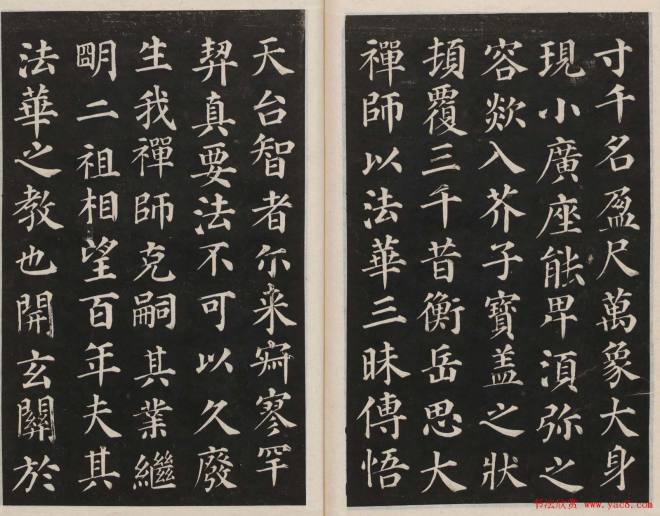 寸千名盈尺萬象大身
現小廣座能卑湏弥之
容欻入芥子寶盖之狀
頓覆三千昔衡岳思大
禪師以法華三昧傳悟
天台智者尓来寂寥罕
契真要法不可以久廢
生我禪師克嗣其業継
明二祖相望百年夫其
法華之教也開玄關於
书法欣赏 www.yac8.com